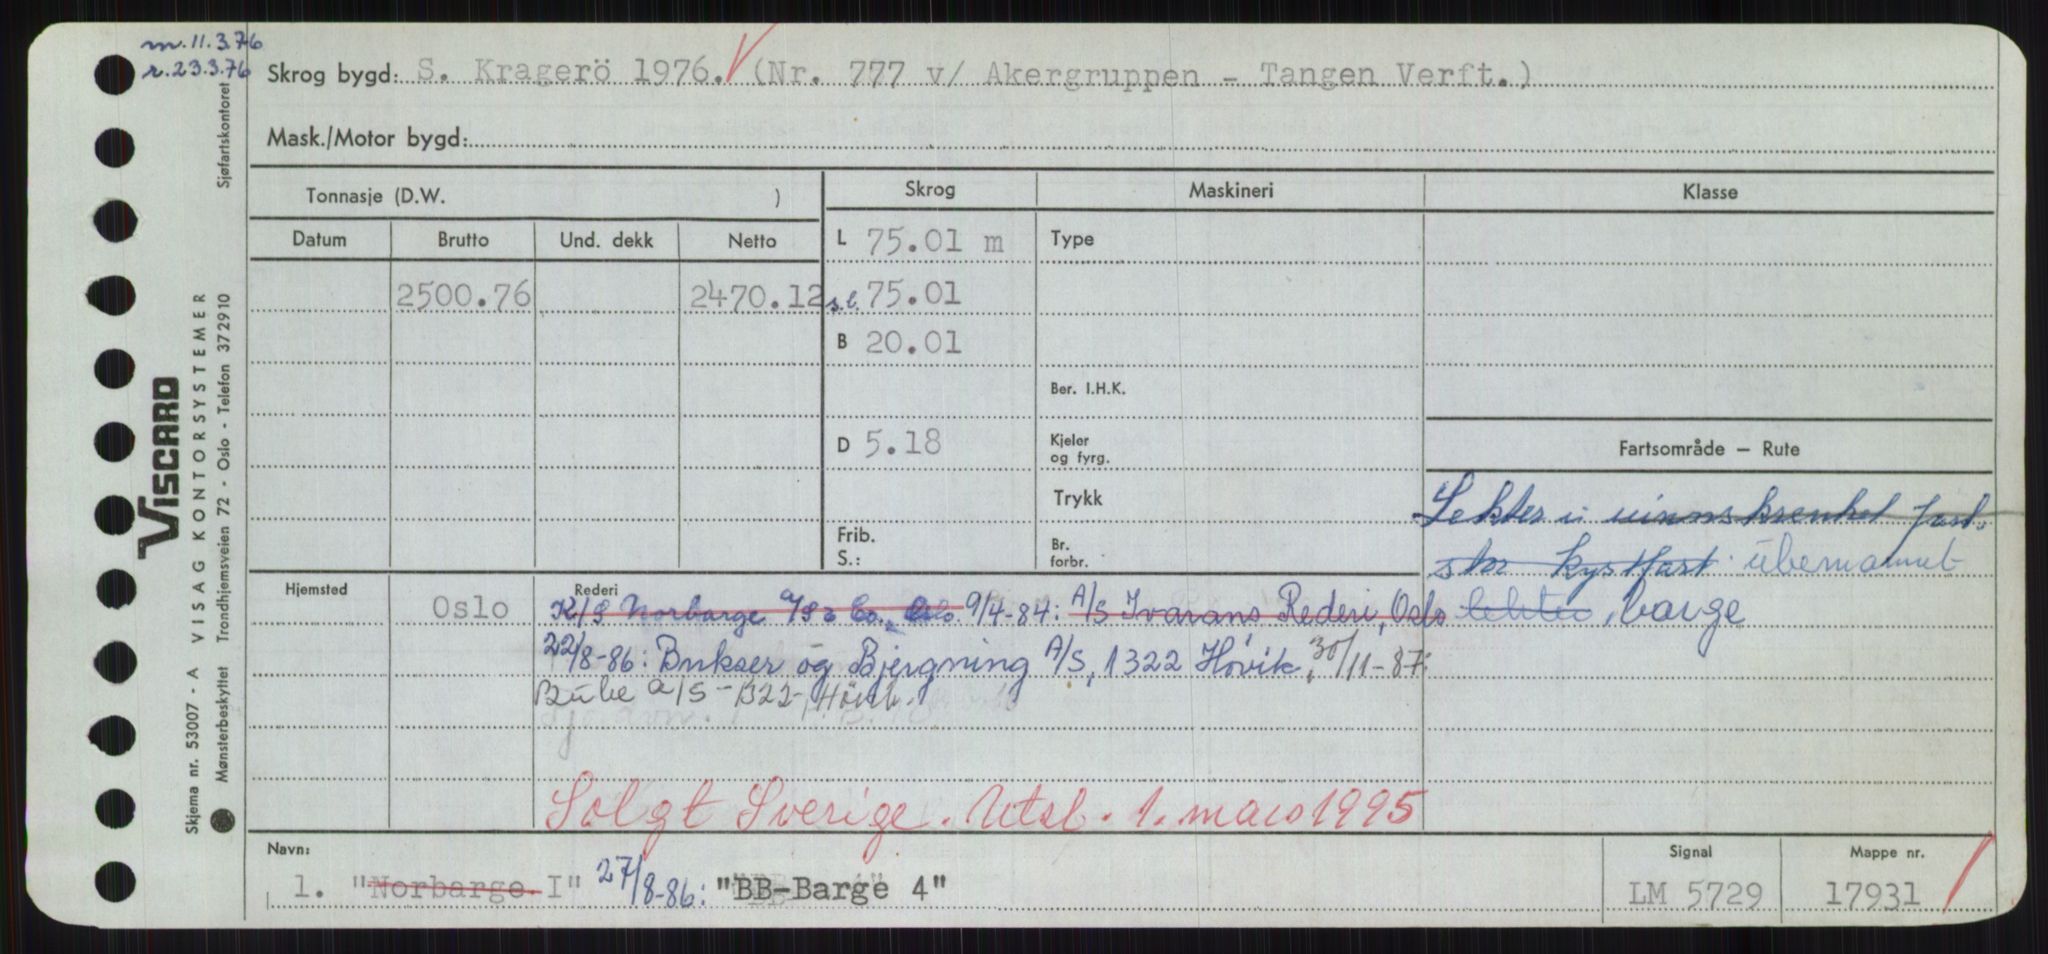 m. 11.3.76
r. 23.3.76
Skrog bygd: S. Kragerö 1976. (Nr. 777 v/ Akergruppen - Tangen Verft.)
Mask./Motor bygd:
Tonnasje (D.W. )
Skrog
Maskineri
Klasse
Datum
Brutto
Und. dekk
Netto
L 75.01 m
Type
2500.76
2470.12
s.l. 75.01
B 20.01
Ber. I.H.K.
D 5.18
Kjeler
og fyrg.
Fartsområde — Rute
Trykk
Lekter i uinnskrenket fart.
Frib.
S.:
Br.
forbr.
stor kystfart. ubemannet
lekter, barge
Hjemsted
Oslo
Rederi
K/S Norbarge A/S & Co., Oslo. 9/4-84: A/S Ivarans Rederi, Oslo
22/8-86: Bukser og Bjergning A/S, 1322 Høvik, 30/11-87:
Bube a/s - 1322 - Hövik.
Solgt Sverige. Utsl. 1. mars 1995
Navn:
1. "Norbarge I" 27/8-86: "BB-Barge 4"
Signal
LM 5729
Mappe nr.
17931
Sjøfartskontoret
VISCARD
VISAG KONTORSYSTEMER
Skjema nr. 53007 - A
Mønsterbeskyttet
Trondhjemsveien 72 - Oslo - Telefon 372910